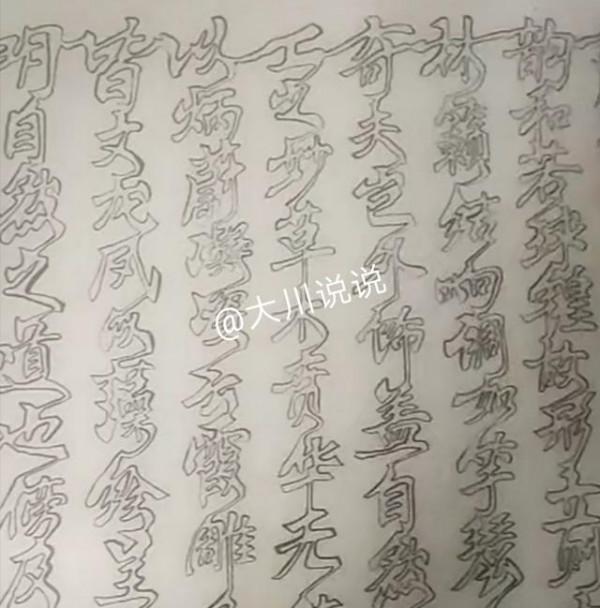 明自然之道也傍及
皆文龙凤以藻绘呈
以炳蔚凝姿云霞雕
工之妙草木贲华无
奇夫岂外饰盖自然
林籁结响调如竽瑟
韵和若球锽故形立则
@大川说说